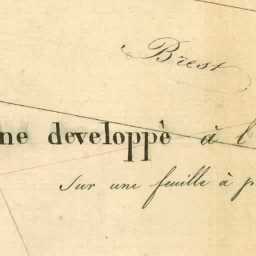 Brest
ne developpè à l
sur une feuille à p